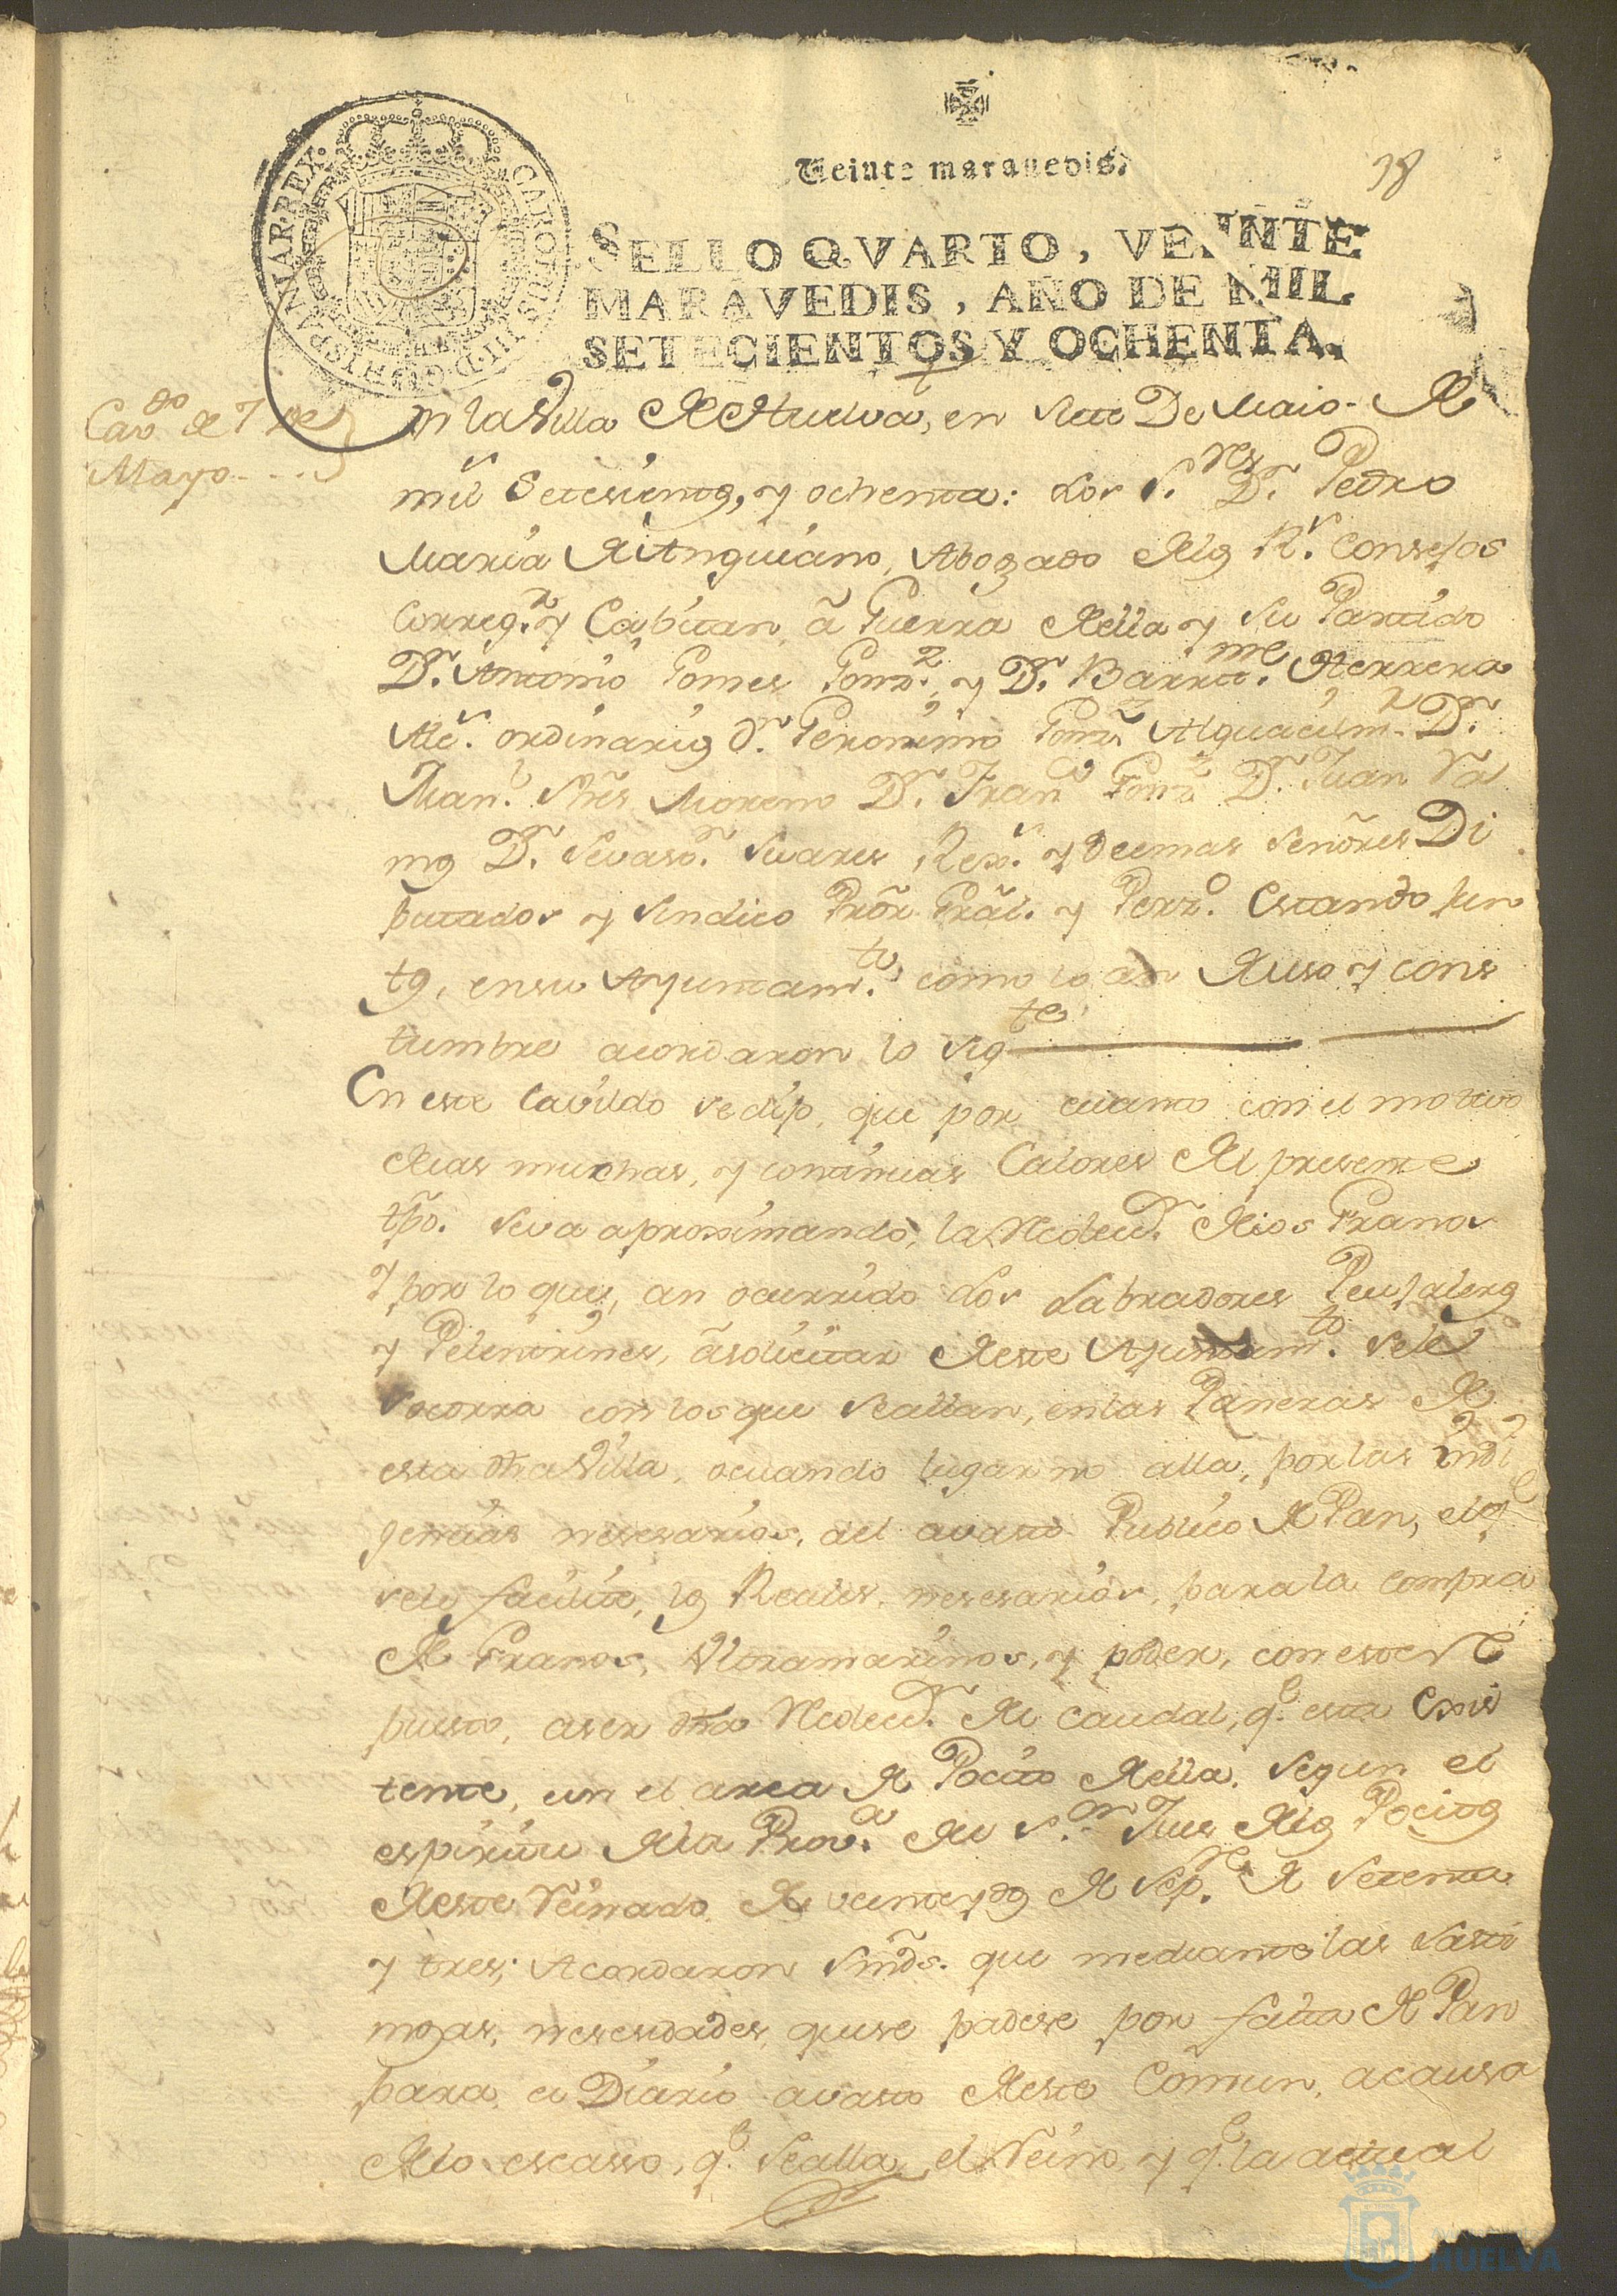 Veinte maravedis.
38
SELLO QVARTO, VEINTE
MARAVEDIS, AÑO DE MIL
SETECIENTOS Y OCHENTA.
CAROLUS III D G HISPANIAR REX
Cavdo de 7 de
Mayo
En la Villa de Huelva, en siete De Maio de
mil Setesientos, y ochenta: Los Sres Dn Pedro
Maria de Anguiano, Abogado de los Rs Consejos
Correg.r y Capitan â Guerra de ella y su Partido
Dn Antonio Gomes Gonz.z y Dn Barttme Herrera
Alc.s ordinarios Dn Geronimo Gonz.z Alguacil m.r Dn
Man.l Moreno Dn Franco Gonz.z Dn Juan Ra
mos Dn Sevasn Suares Rex.s y demas Señores Di
putados y Sindico Prõr Grãl. y Perz.o Estando Jun
tos, en su Ayuntam.to como lo an de uso y cons
tumbre acordaron lo sigte
En este Cavildo se dijo, que por cuanto con el motivo
de las muchas, y continuas Calores del presente
tpõ. se va aproximando, la de los Granos
y por lo que, an ocurrido Los Labradores Peujaleros
y Pelentrines, â solicitar de este Ayuntam.to se le
socorra con los que se allan, en las Paneras de
esta dha Villa, o cuando lugar no alla, por las indi
gencias nesesarias, del avasto Publico de Pan, el q.e
se le facilite, los Reales nesesarios, para la compra
de Granos, Ultramarinos, y poder, con este re
puesto, aser dha del caudal, q.e esta Exis
tente, en el arca de Pocito de ella, segun el
espiritu de la Prova del S.or Jues de los Pocitos
de este Reinado de veinte y dos de Sep.re de Setenta
y tres; Acordaron que mediante las lasti
mosas, nesesidades, que se padese por falta de Pan
para el Diario avasto de este Comun, a causa
de lo escaso, q.e se alla, el Reino y q.e la actual
HUELVA